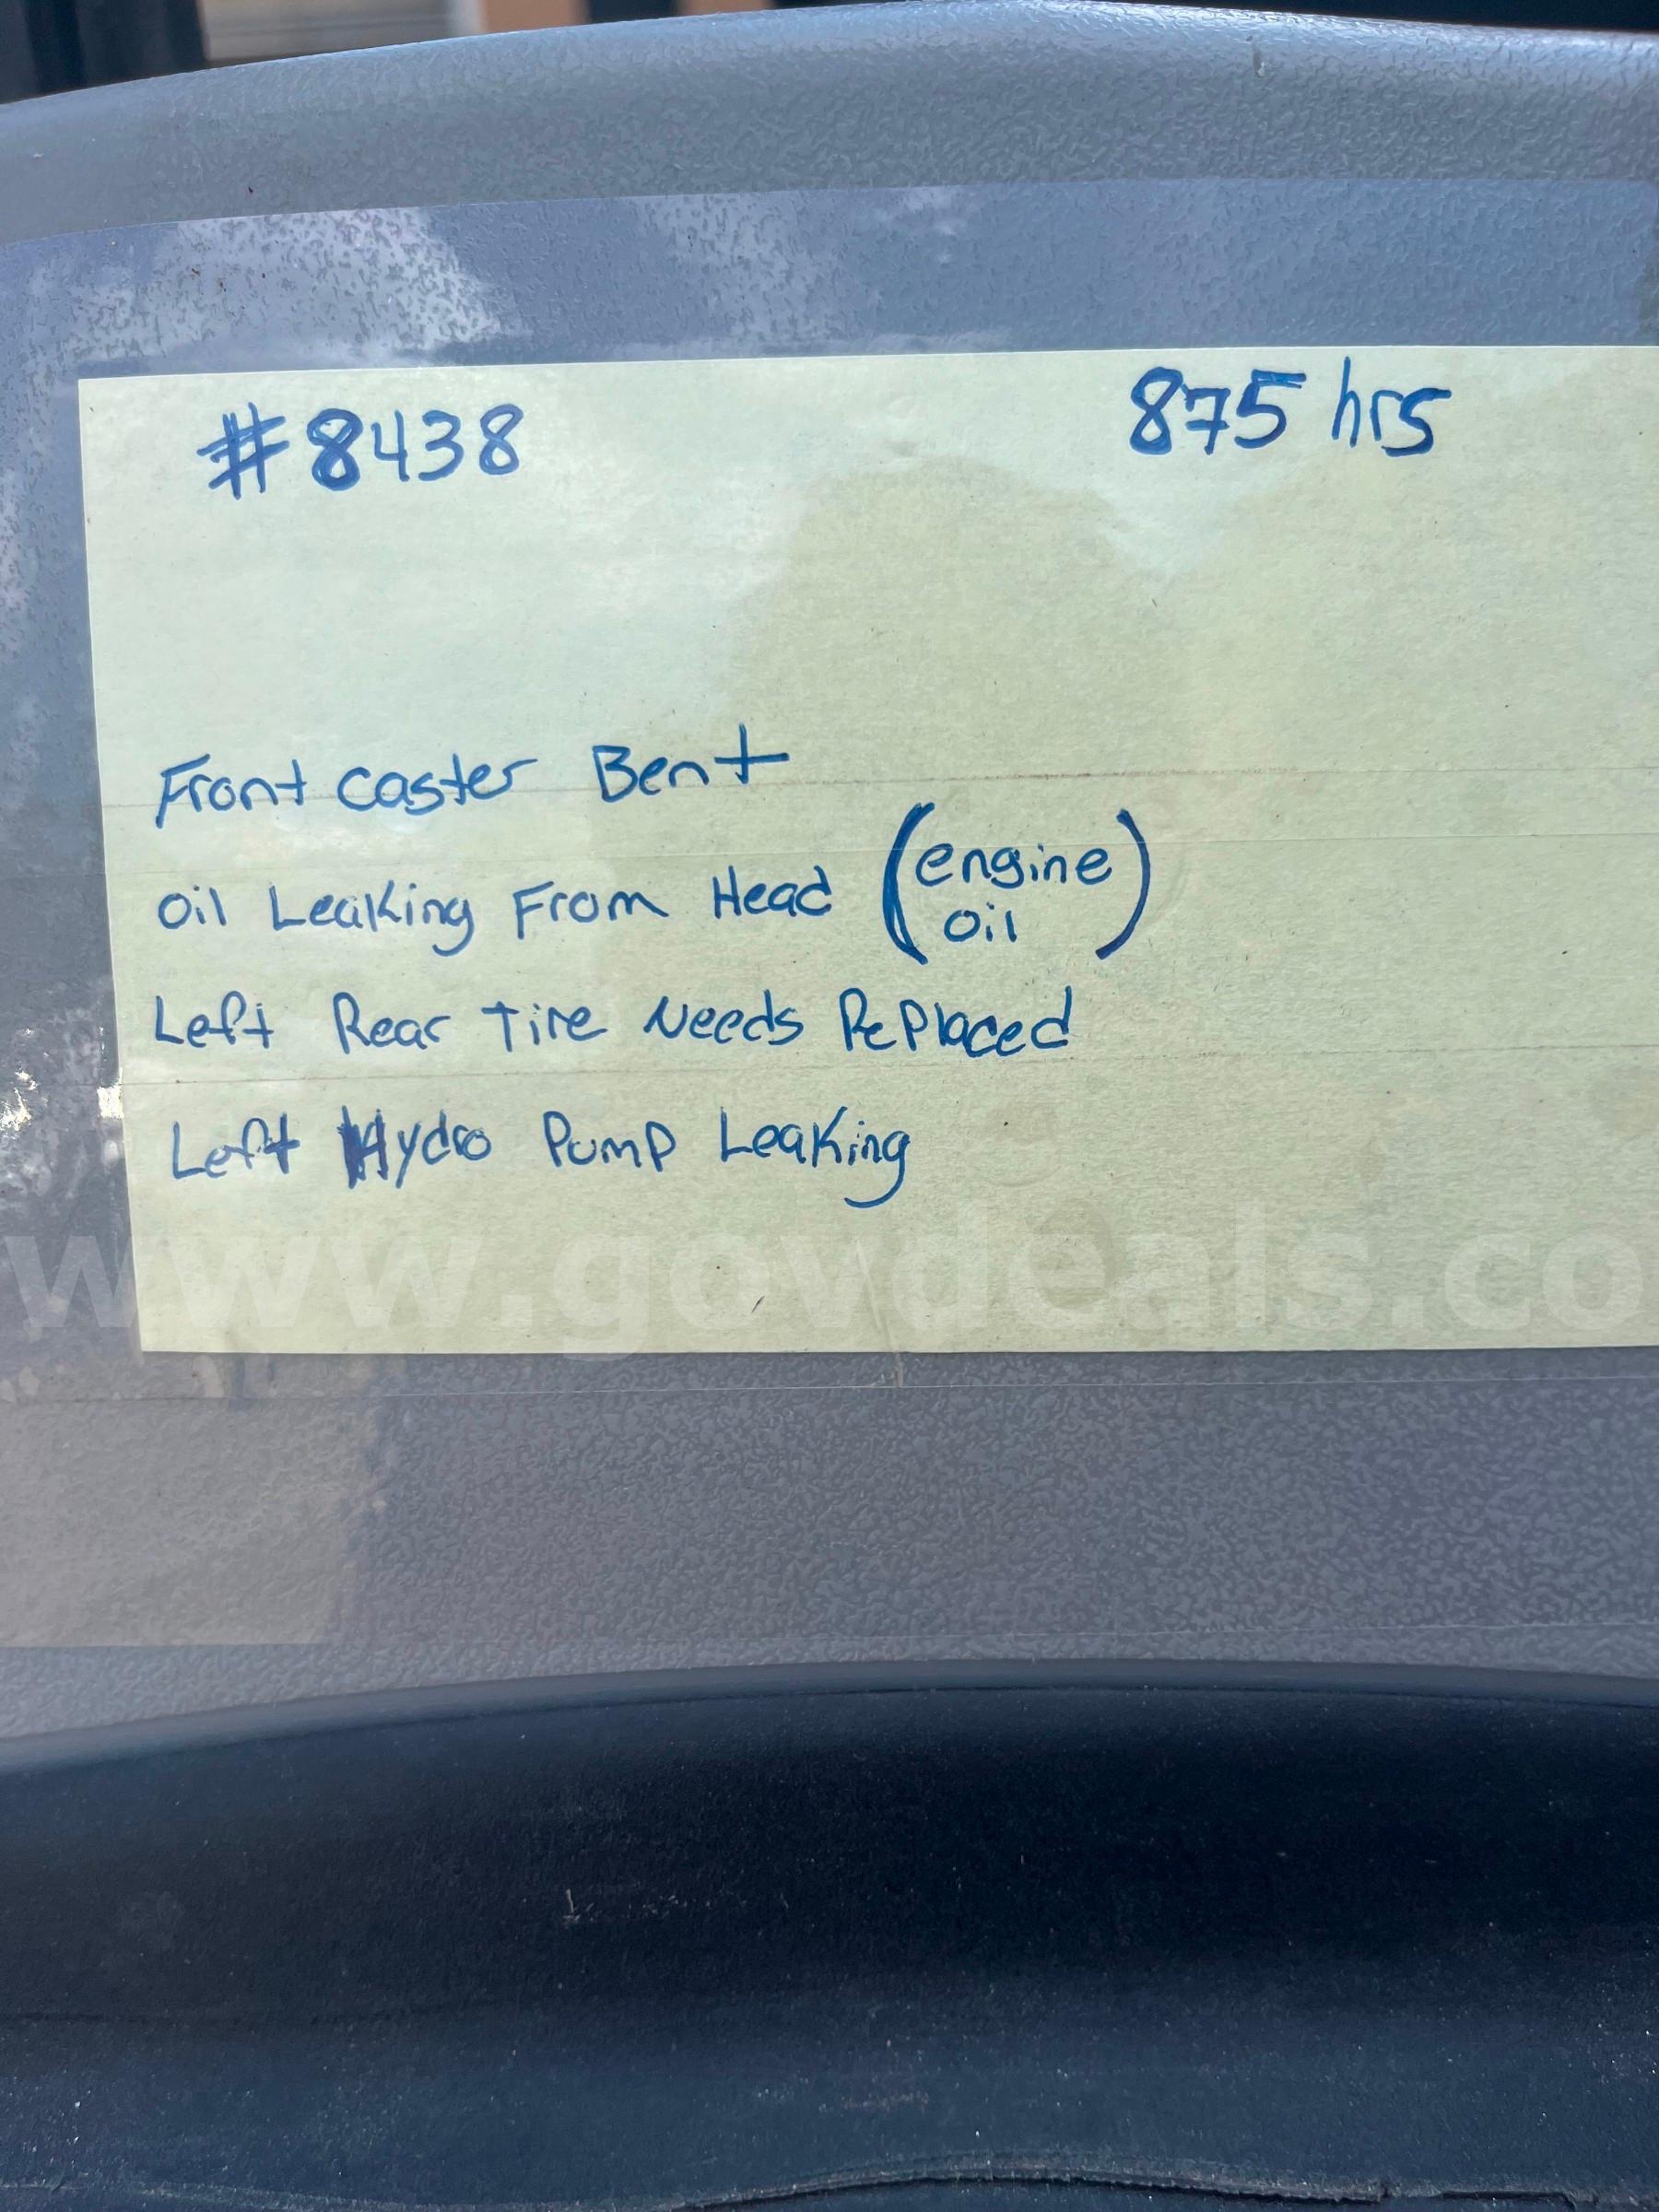 #8438 875 hrs
Front caster Bent
oil Leaking From Head (engine oil)
Left Rear Tire Needs Replaced
Left Hydro Pump Leaking
www.govdeals.co